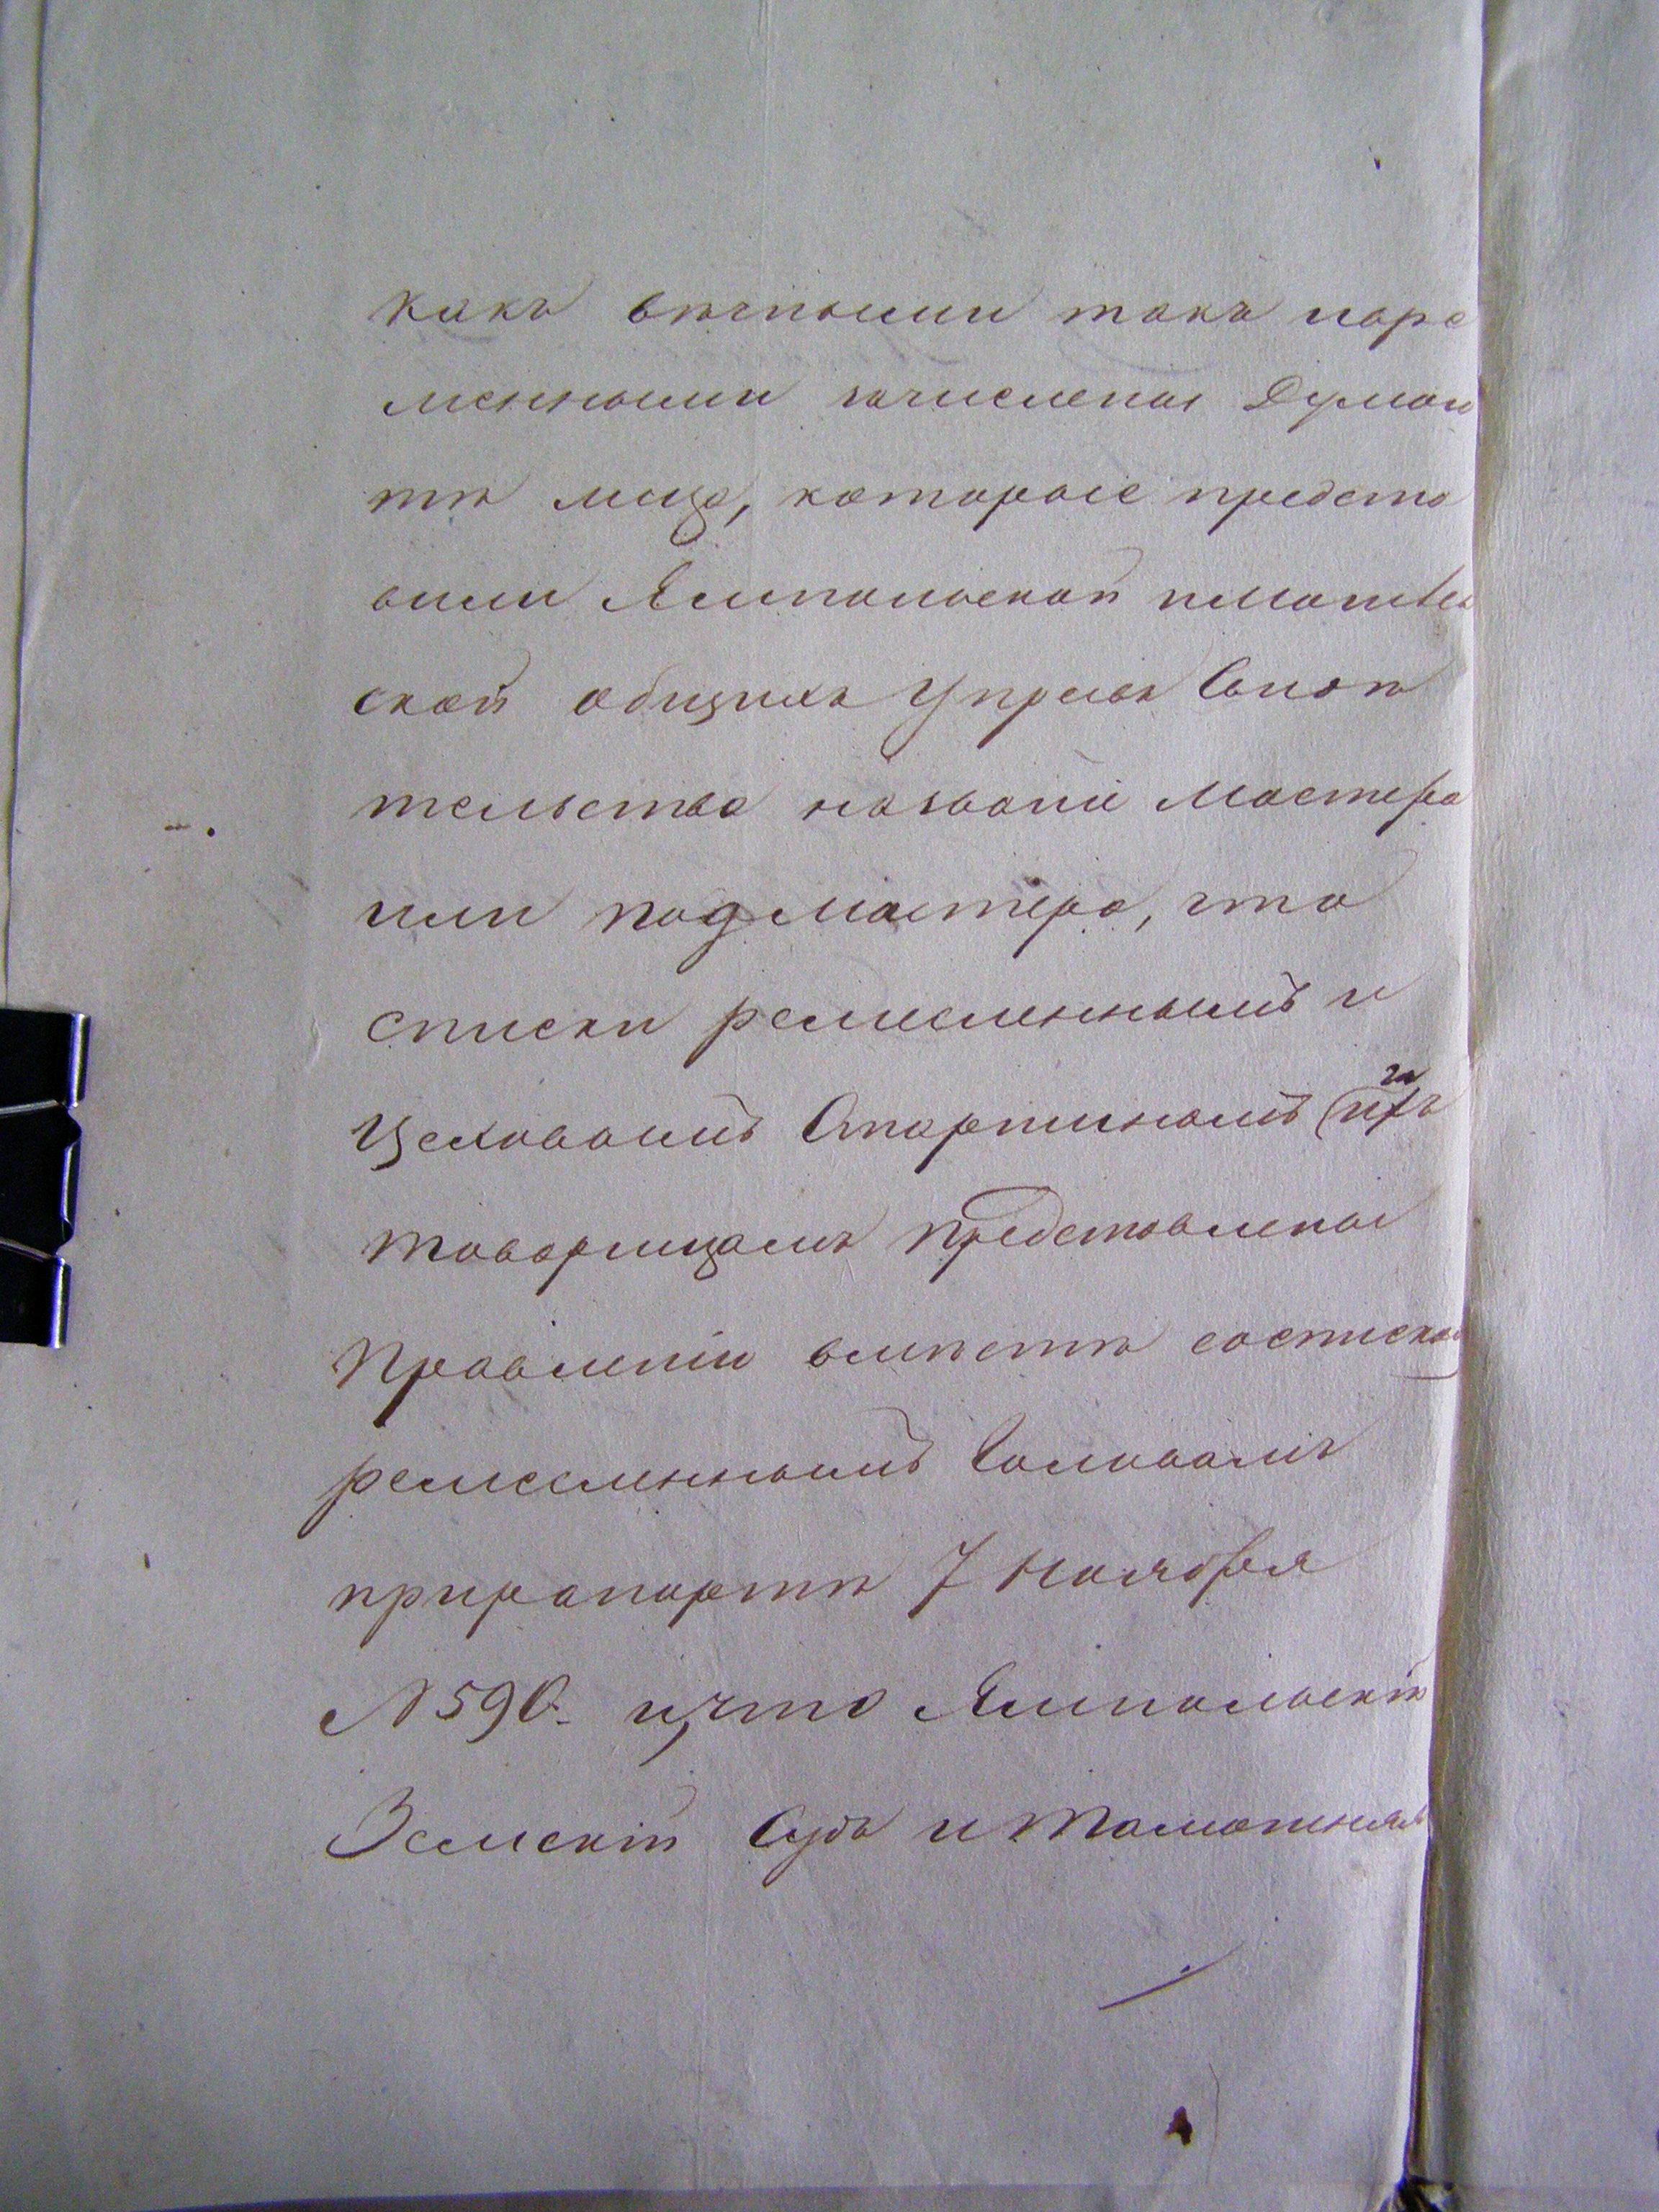 какъ вѣчными такъ и вре
менными зачислены Думою
тѣ лица, которые предста
вили Ямпольской
ской общихъ Управъ Свидѣ
тельства на званіе Мастера
или подмастера, что
списки ремесленнымъ и
Цеховымъ Старшинамъ и ихъ
товарищамъ представлены
Правленію вмѣстѣ со спискомъ
ремесленнымъ Головамъ
при рапортѣ 7 Ноября
№ 590. и, что Ямпольскій
Земскій Судъ и Таможня